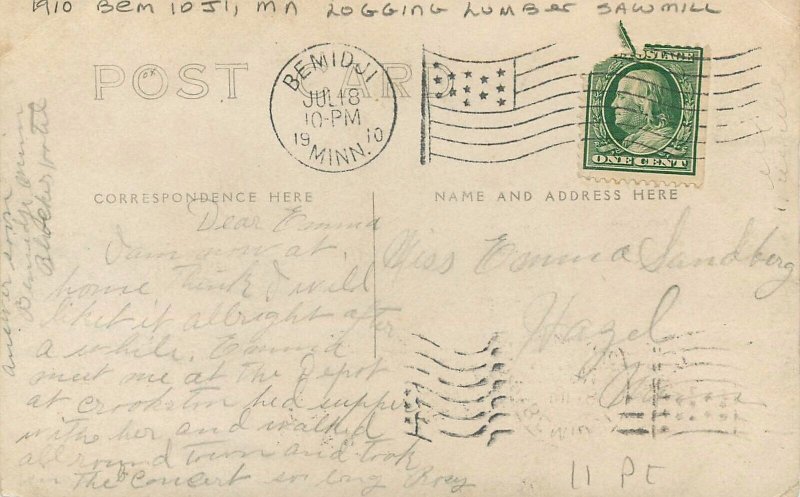 1910 BEMIDJI, MN LOGGING LUMBER SAWMILL
POST CARD
OK
BEMIDJI
JUL 18
10-PM
1910
MINN.
POSTAGE
ONE CENT
CORRESPONDENCE HERE
NAME AND ADDRESS HERE
Dear Emma
I am now at
home Think I will
like it allright after
a while.
meet me at the Depot
at Crookston had supper
with her and walked
all round town and took
in the Concert so long Rosy
answer soon
Bemidji Minn
Hotel
Miss Emma Sandberg
Hazel
Minn
11 Pt